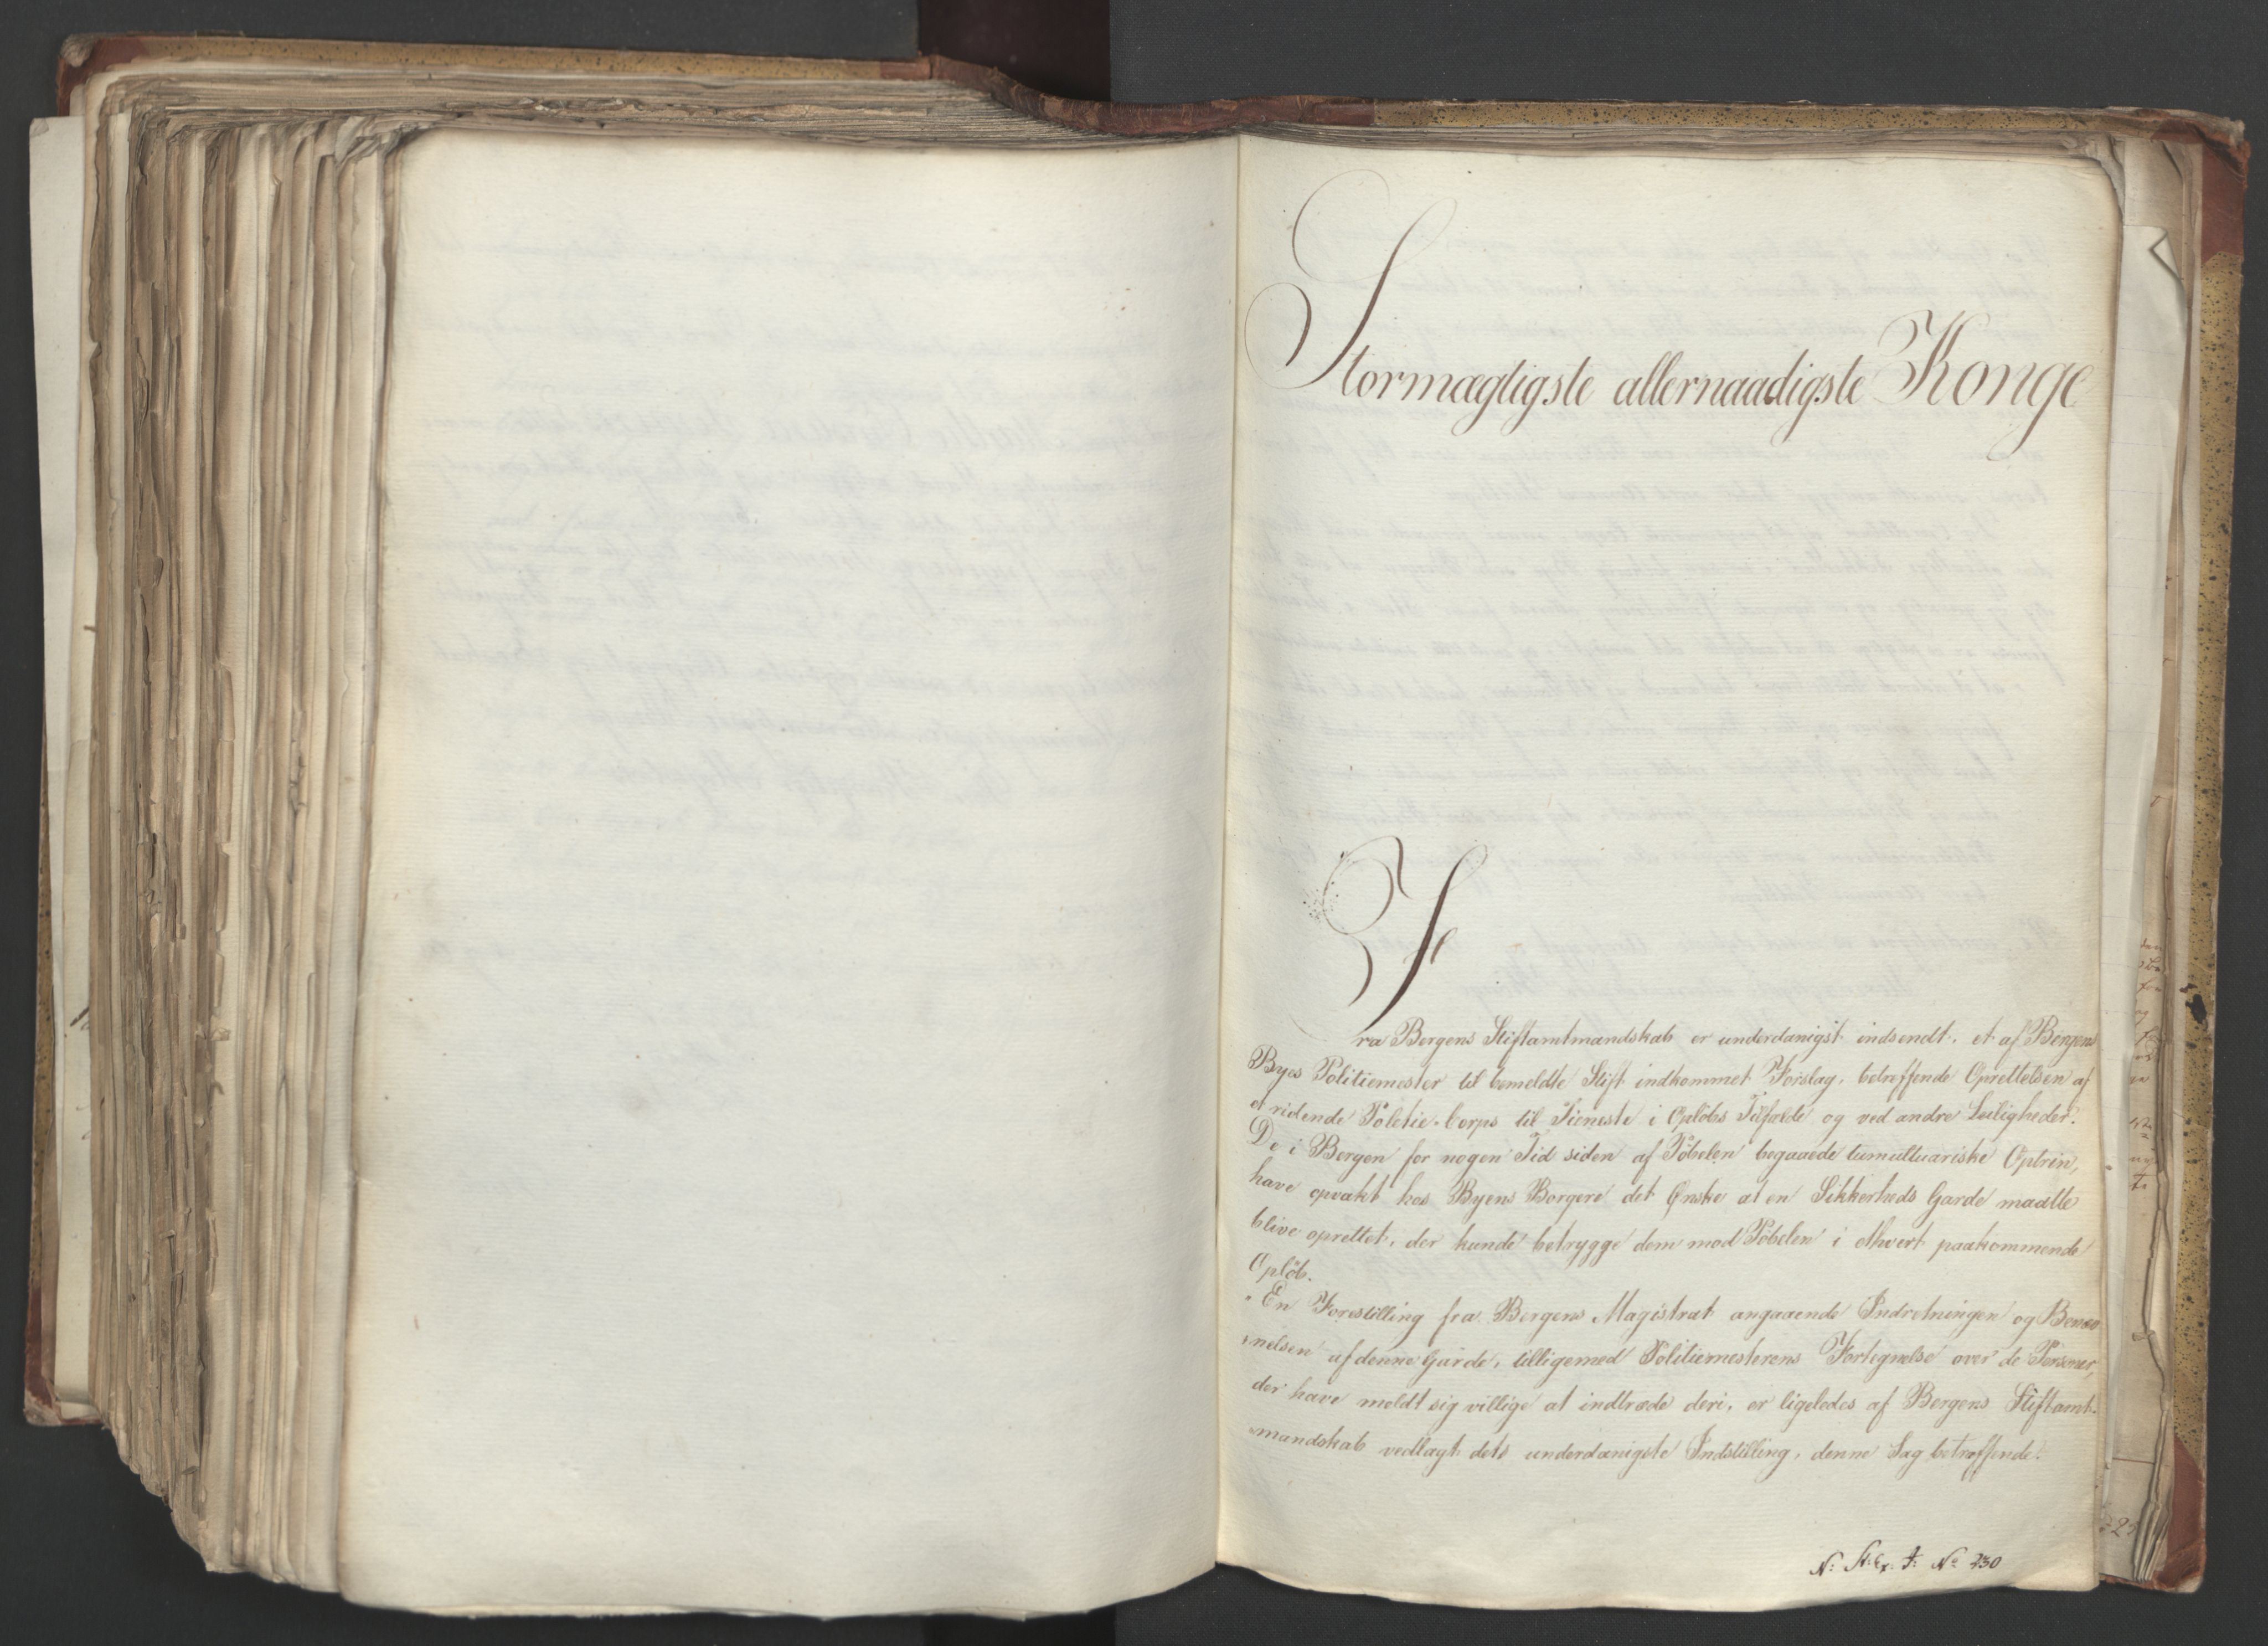 Stormægtigste allernaadigste Konge
Fra Bergens Stiftamtmandskab er underdanigst indsendt, et af Bergens
Byes Politiemester til bemeldte Stift indkommet Forslag, betreffende Oprettelsen af
et ridende Politie-Corps til Tieneste i Opløbs Tilfælde og ved andre Leiligheder.
De i Bergen for nogen Tid siden af Pøbelen begaaede tumultuariske Optrin,
have opvakt hos Byens Borgere det Ønske at en Sikkerheds Garde maatte
blive oprettet, der kunde betrygge dem mod Pøbelen i ethvert paakommende
Opløb.
En Forestilling fra Bergens Magistrat angaaende Indretningen og Benæv
nelsen af denne Garde, tilligemed Politiemesterens Fortegnelse over de Personer,
der have meldt sig villige at indtræde deri, er ligeledes af Bergens Stiftamt-
mandskab vedlagt dets underdanigste Indstilling, denne Sag betreffende.
N: St: Ex. T: No 230